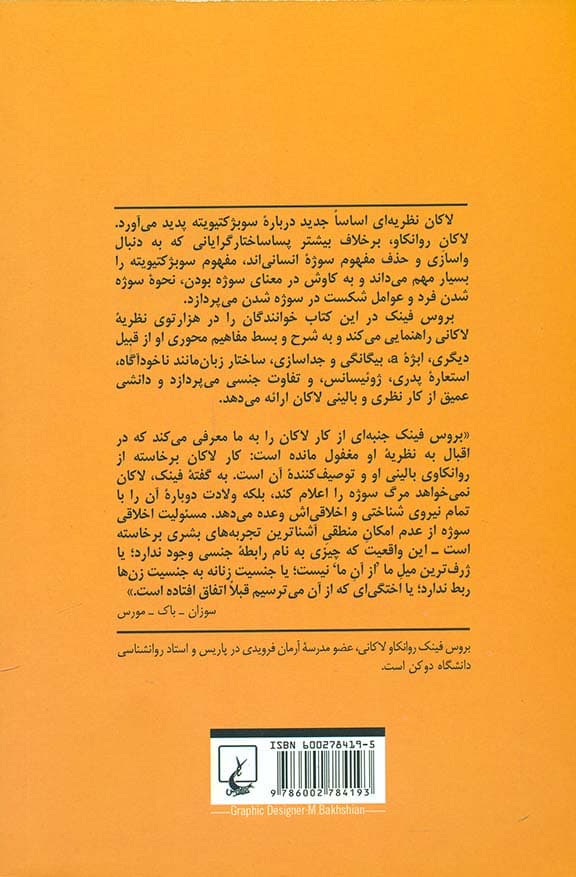 لاکان نظریه‌ای اساساً جدید دربارهٔ سوبژکتیویته پدید می‌آورد.
لاکان روانکاو، برخلاف بیشتر پساساختارگرایانی که به دنبال
واسازی و حذف مفهوم سوژهٔ انسانی‌اند، مفهوم سوبژکتیویته را
بسیار مهم می‌داند و به کاوش در معنای سوژه بودن، نحوهٔ سوژه
شدن فرد و عوامل شکست در سوژه شدن می‌پردازد.
بروس فینک در این کتاب خوانندگان را در هزارتوی نظریهٔ
لاکانی راهنمایی می‌کند و به شرح و بسط مفاهیم محوری او از قبیل
دیگری، ابژهٔ a، بیگانگی و جداسازی، ساختار زبان‌مانند ناخودآگاه،
استعارهٔ پدری، ژوئیسانس، و تفاوت جنسی می‌پردازد و دانشی
عمیق از کار نظری و بالینی لاکان ارائه می‌دهد.
«بروس فینک جنبه‌ای از کار لاکان را به ما معرفی می‌کند که در
اقبال به نظریهٔ او مغفول مانده است: کار لاکان برخاسته از
روانکاوی بالینی او و توصیف‌کنندهٔ آن است. به گفتهٔ فینک، لاکان
نمی‌خواهد مرگ سوژه را اعلام کند، بلکه ولادت دوبارهٔ آن را با
تمام نیروی شناختی و اخلاقی‌اش وعده می‌دهد. مسئولیت اخلاقی
سوژه از عدم امکانِ منطقیِ آشناترین تجربه‌های بشری برخاسته
است ـ این واقعیت که چیزی به نام رابطهٔ جنسی وجود ندارد؛ یا
ژرف‌ترین میلِ ما ʼاز آنِ ماʻ نیست؛ یا جنسیت زنانه به جنسیت زن‌ها
ربط ندارد؛ یا اختگی‌ای که از آن می‌ترسیم قبلاً اتفاق افتاده است.»
سوزان ـ باک ـ مورس
بروس فینک روانکاو لاکانی، عضو مدرسهٔ آرمان فرویدی در پاریس و استاد روانشناسی
دانشگاه دوکن است.
ISBN 600278419-5
9 786002 784193
Graphic Designer:M.Bakhshian